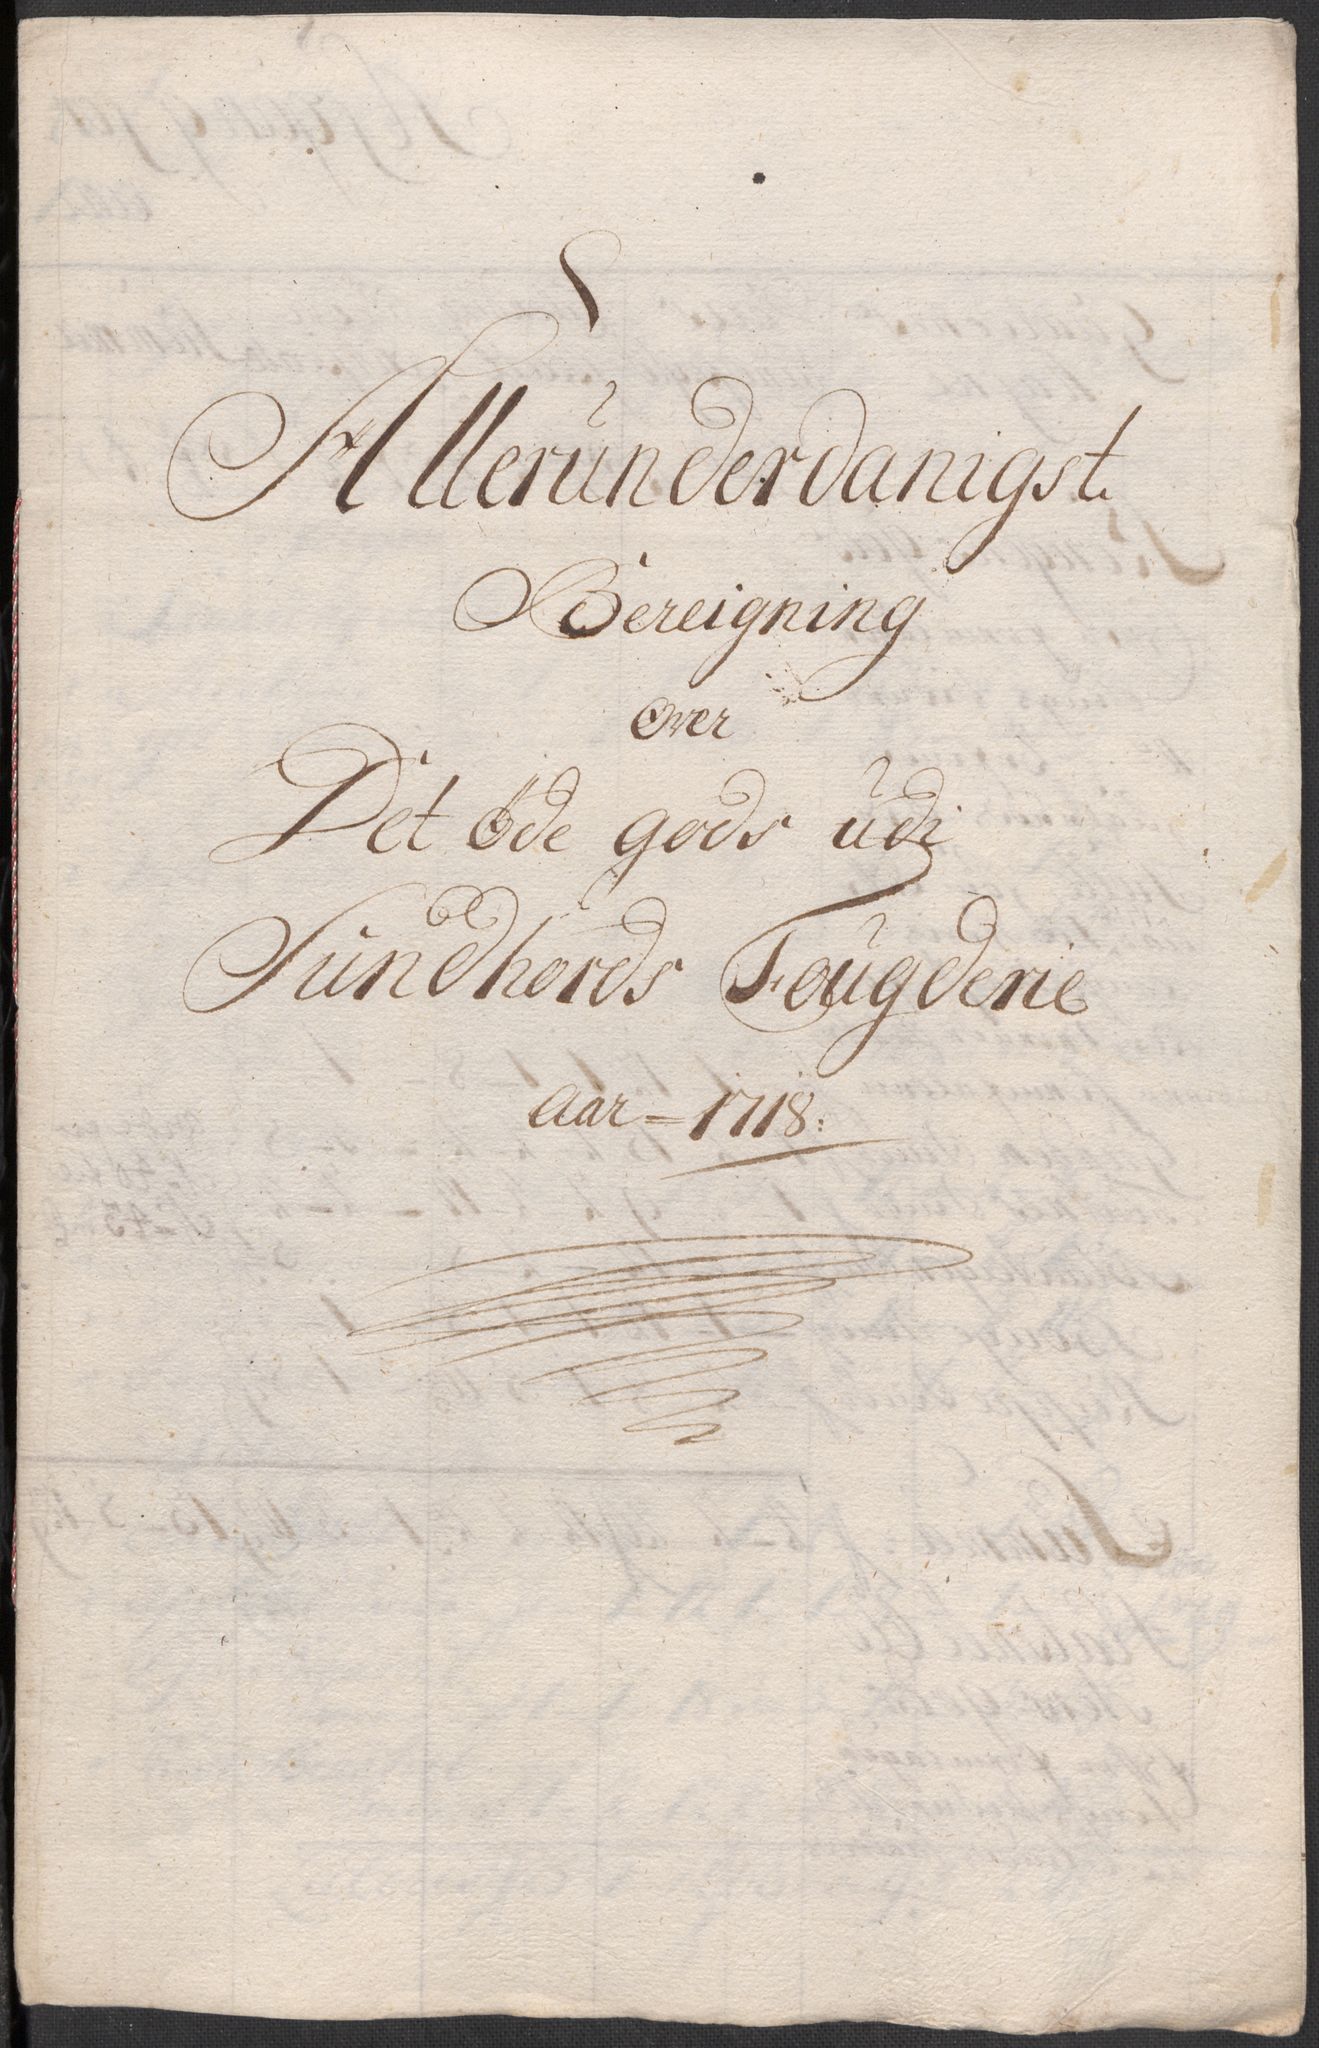 Alleründerdanigst.
Bereigning
over
Det öde gods üdi
Sündhords Fougderie
Aar = 1718: